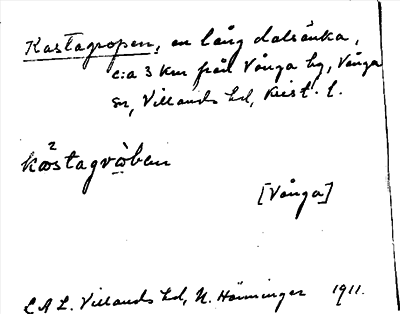 Kastagropen, en lång dalsänka,
c:a 3 km från Vånga by, Vånga
sn, Villands hd, Krist. l.
kåstagråben
[Vånga]
L A L. Villands hd, N. Hänninger 1911.